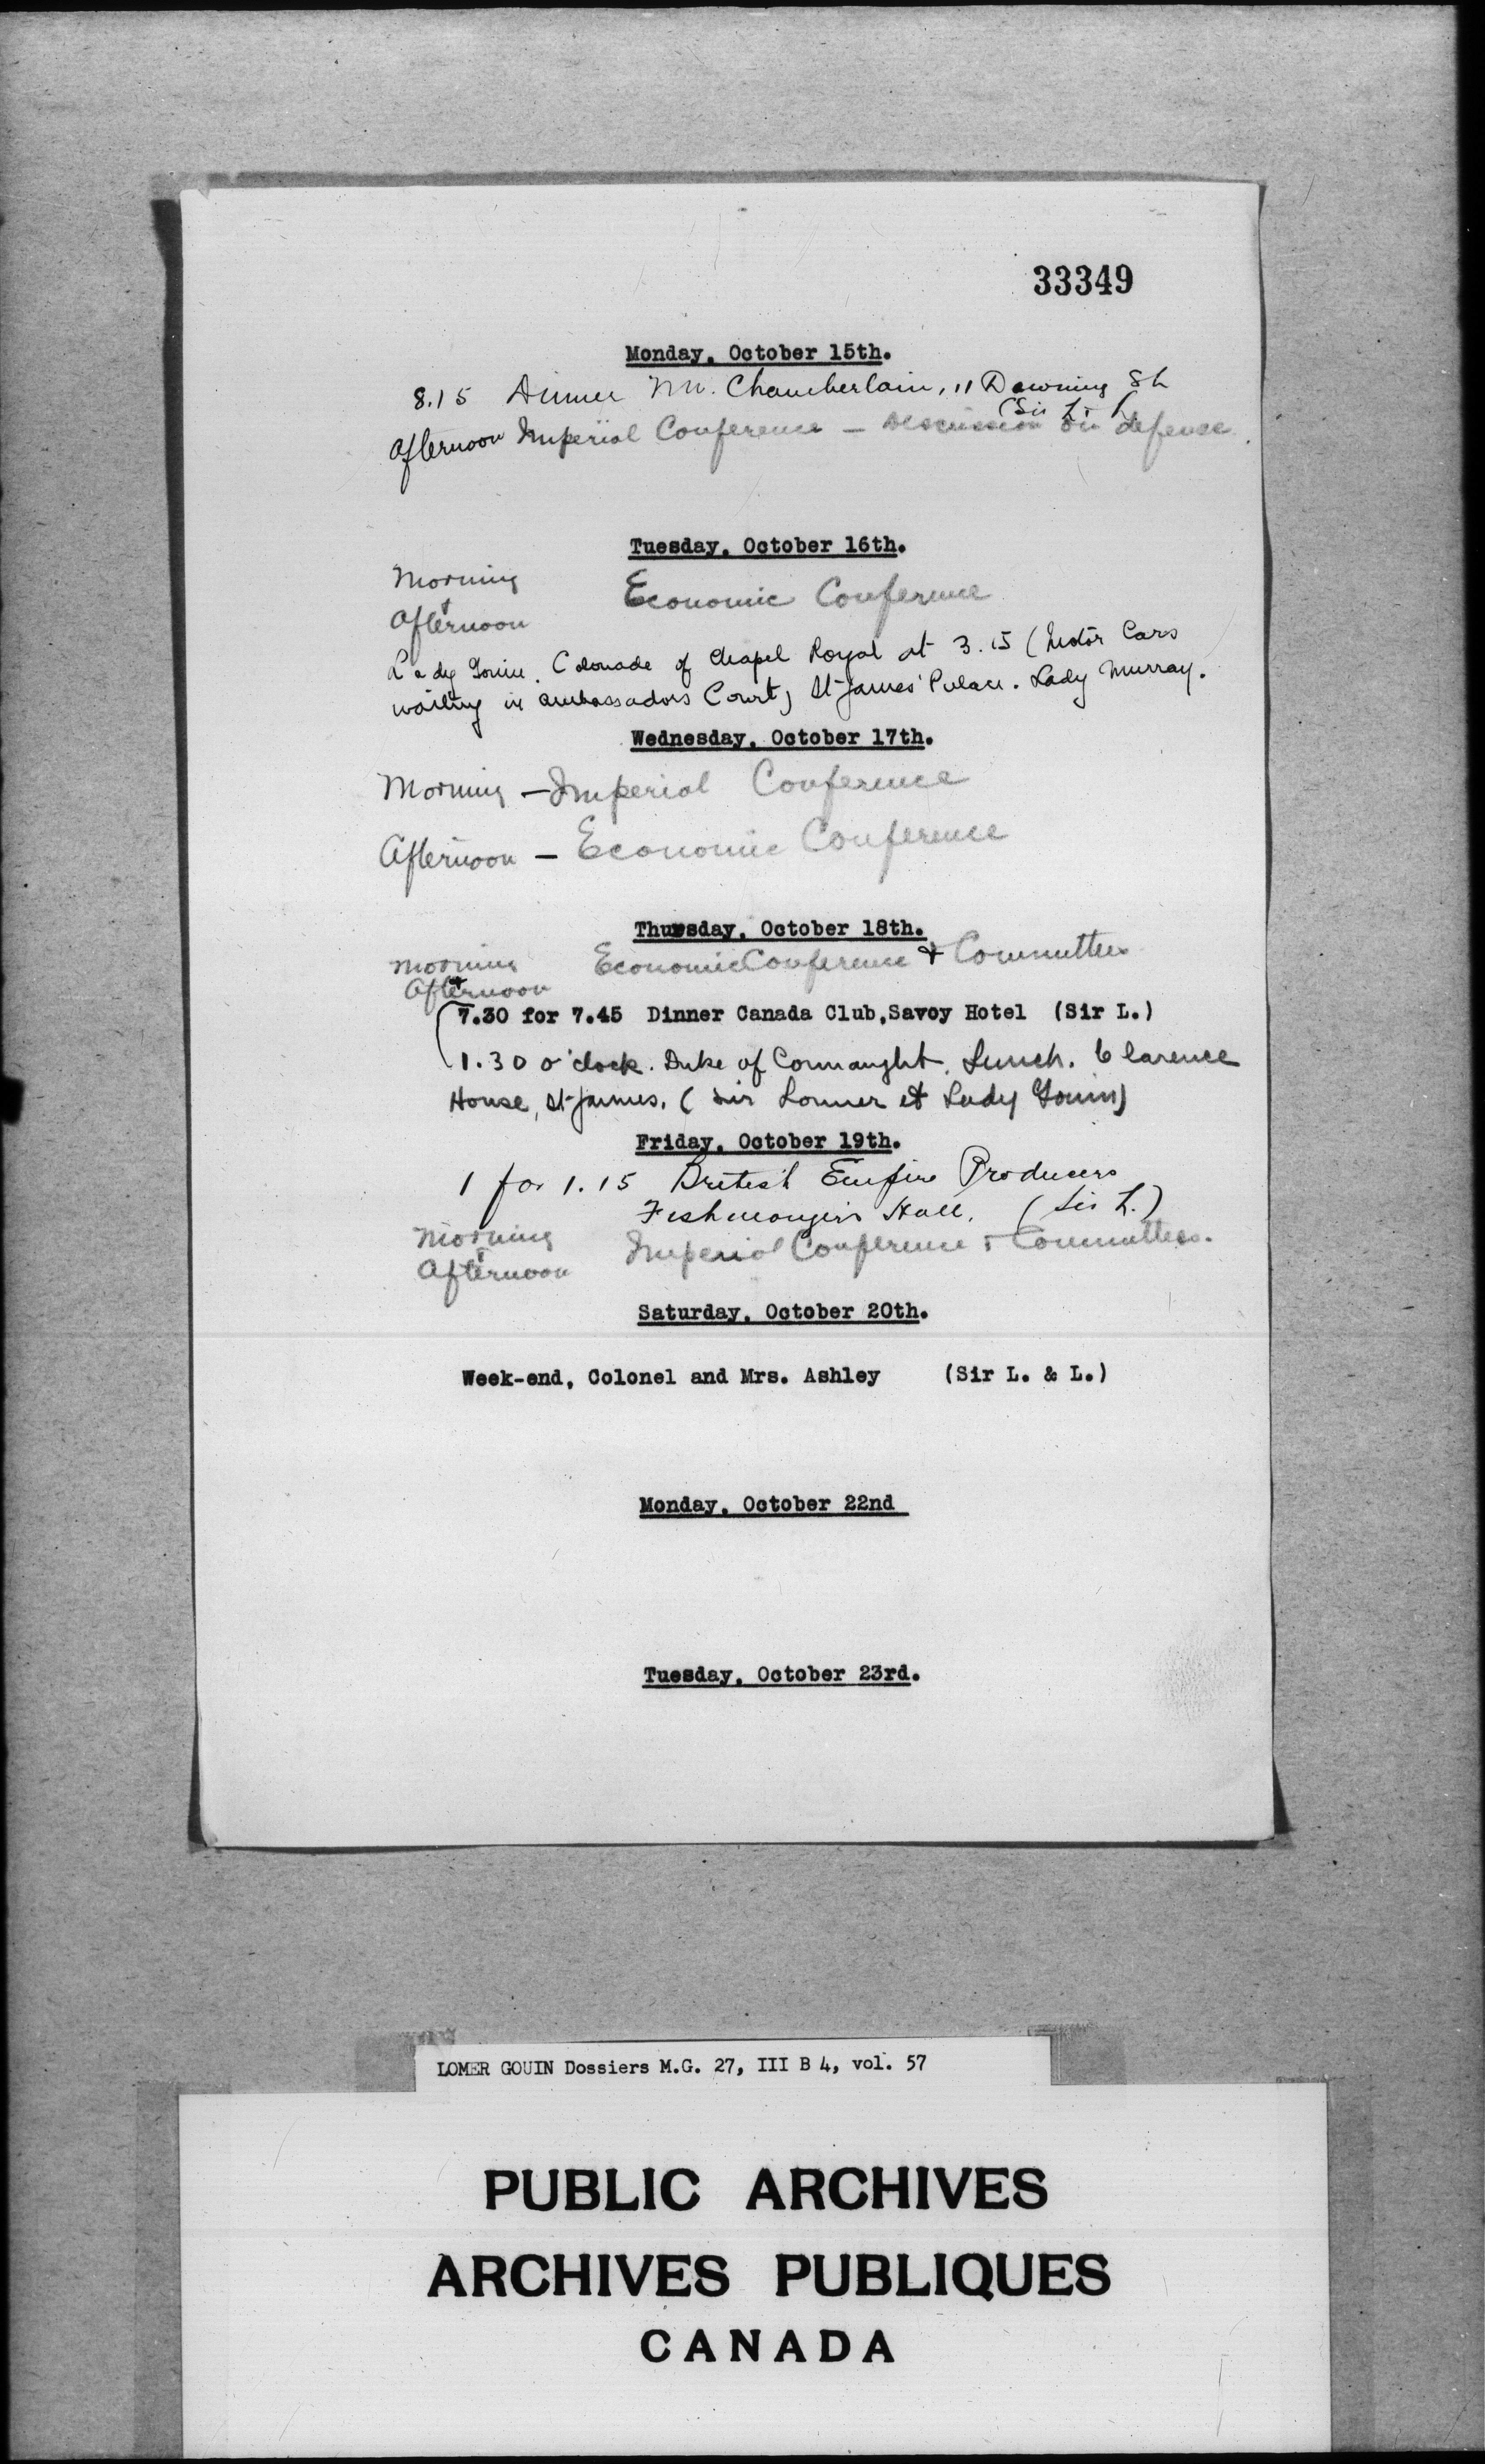 33349
Monday, October 15th.
8.15 Dinner Mr. Chamberlain, 11 Downing St
(Sir L.
Afternoon Imperial Conference — Discussion on defense.
Tuesday, October 16th.
Morning
+
Afternoon
Economic Conference
Lady Gouin. Colonade of Chapel Royal at 3.15 (Motor Cars
waiting in Ambassadors Court) St James' Palace. Lady Murray.
Wednesday, October 17th.
Morning — Imperial Conference
Afternoon — Economic Conference
Thursday, October 18th.
Morning
+
Afternoon
Economic Conference & Committees
7.30 for 7.45 Dinner Canada Club, Savoy Hotel (Sir L.)
1.30 o'clock. Duke of Connaught. Lunch. Clarence
House, St James. (Sir Lomer et Lady Gouin)
Friday, October 19th.
1 for 1.15 British Empire Producers
Fishmonger's Hall. (Sir L.)
Morning
+
Afternoon
Imperial Conference & Committees.
Saturday, October 20th.
Week-end, Colonel and Mrs. Ashley (Sir L. & L.)
Monday, October 22nd
Tuesday, October 23rd.
LOMER GOUIN Dossiers M.G. 27, III B 4, vol. 57
PUBLIC ARCHIVES
ARCHIVES PUBLIQUES
CANADA